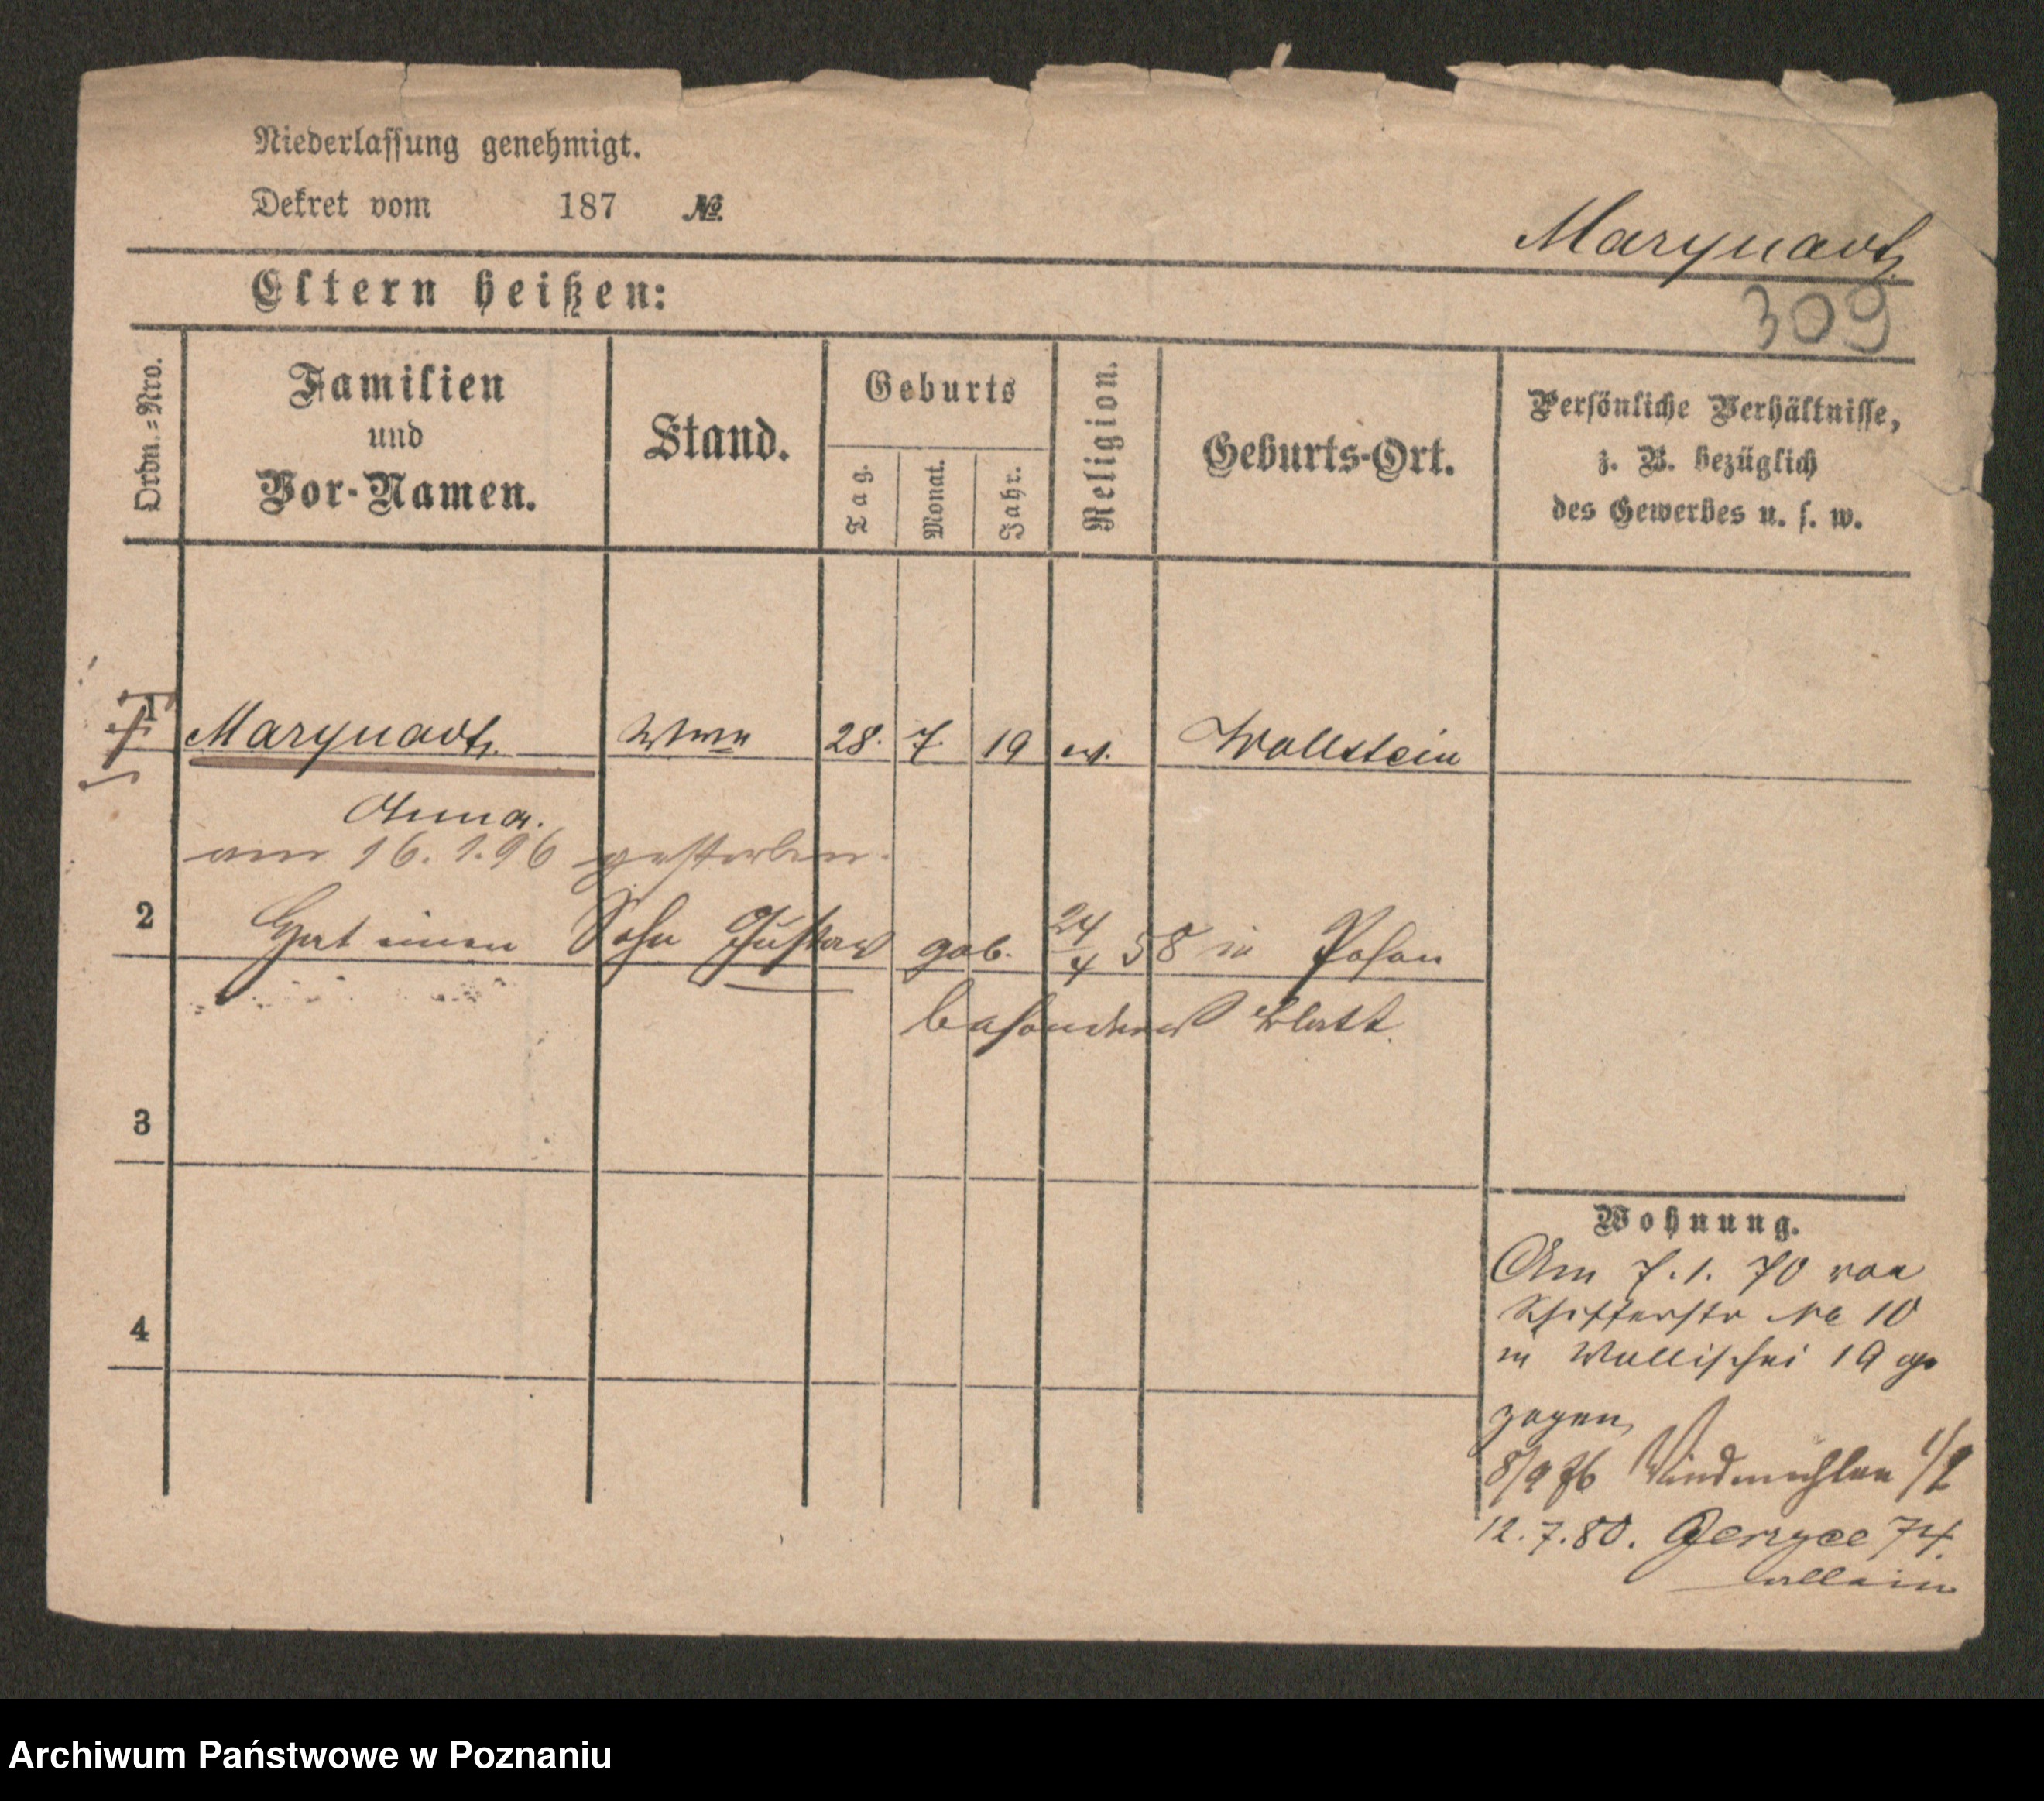 Niederlassung genehmigt.
Dekret vom 187 №
Marquardt
Eltern heißen:
309
Ordn.-Nro.
Familien
und
Vor-Namen.
Stand.
Geburts
Tag.
Monat.
Jahr.
Religion.
Geburts-Ort.
Persönliche Verhältnisse,
z. B. bezüglich
des Gewerbes u. s. w.
1 Marquardt Wwe 28. 7. 19 ev. Wollstein
Anna.
am 16.1.96 gestorben.
2 Hat einen Sohn Gustav geb. 24/4 58 in Posen
besonderes Blatt.
3
4
Wohnung.
Am 7.1. 70 von
Schifferstr No 10
n Wallischei 19 ge
zogen,
8/9 76 Windmühlen 1/2
12.7.80. Gerszce 74.
allein
Archiwum Państwowe w Poznaniu